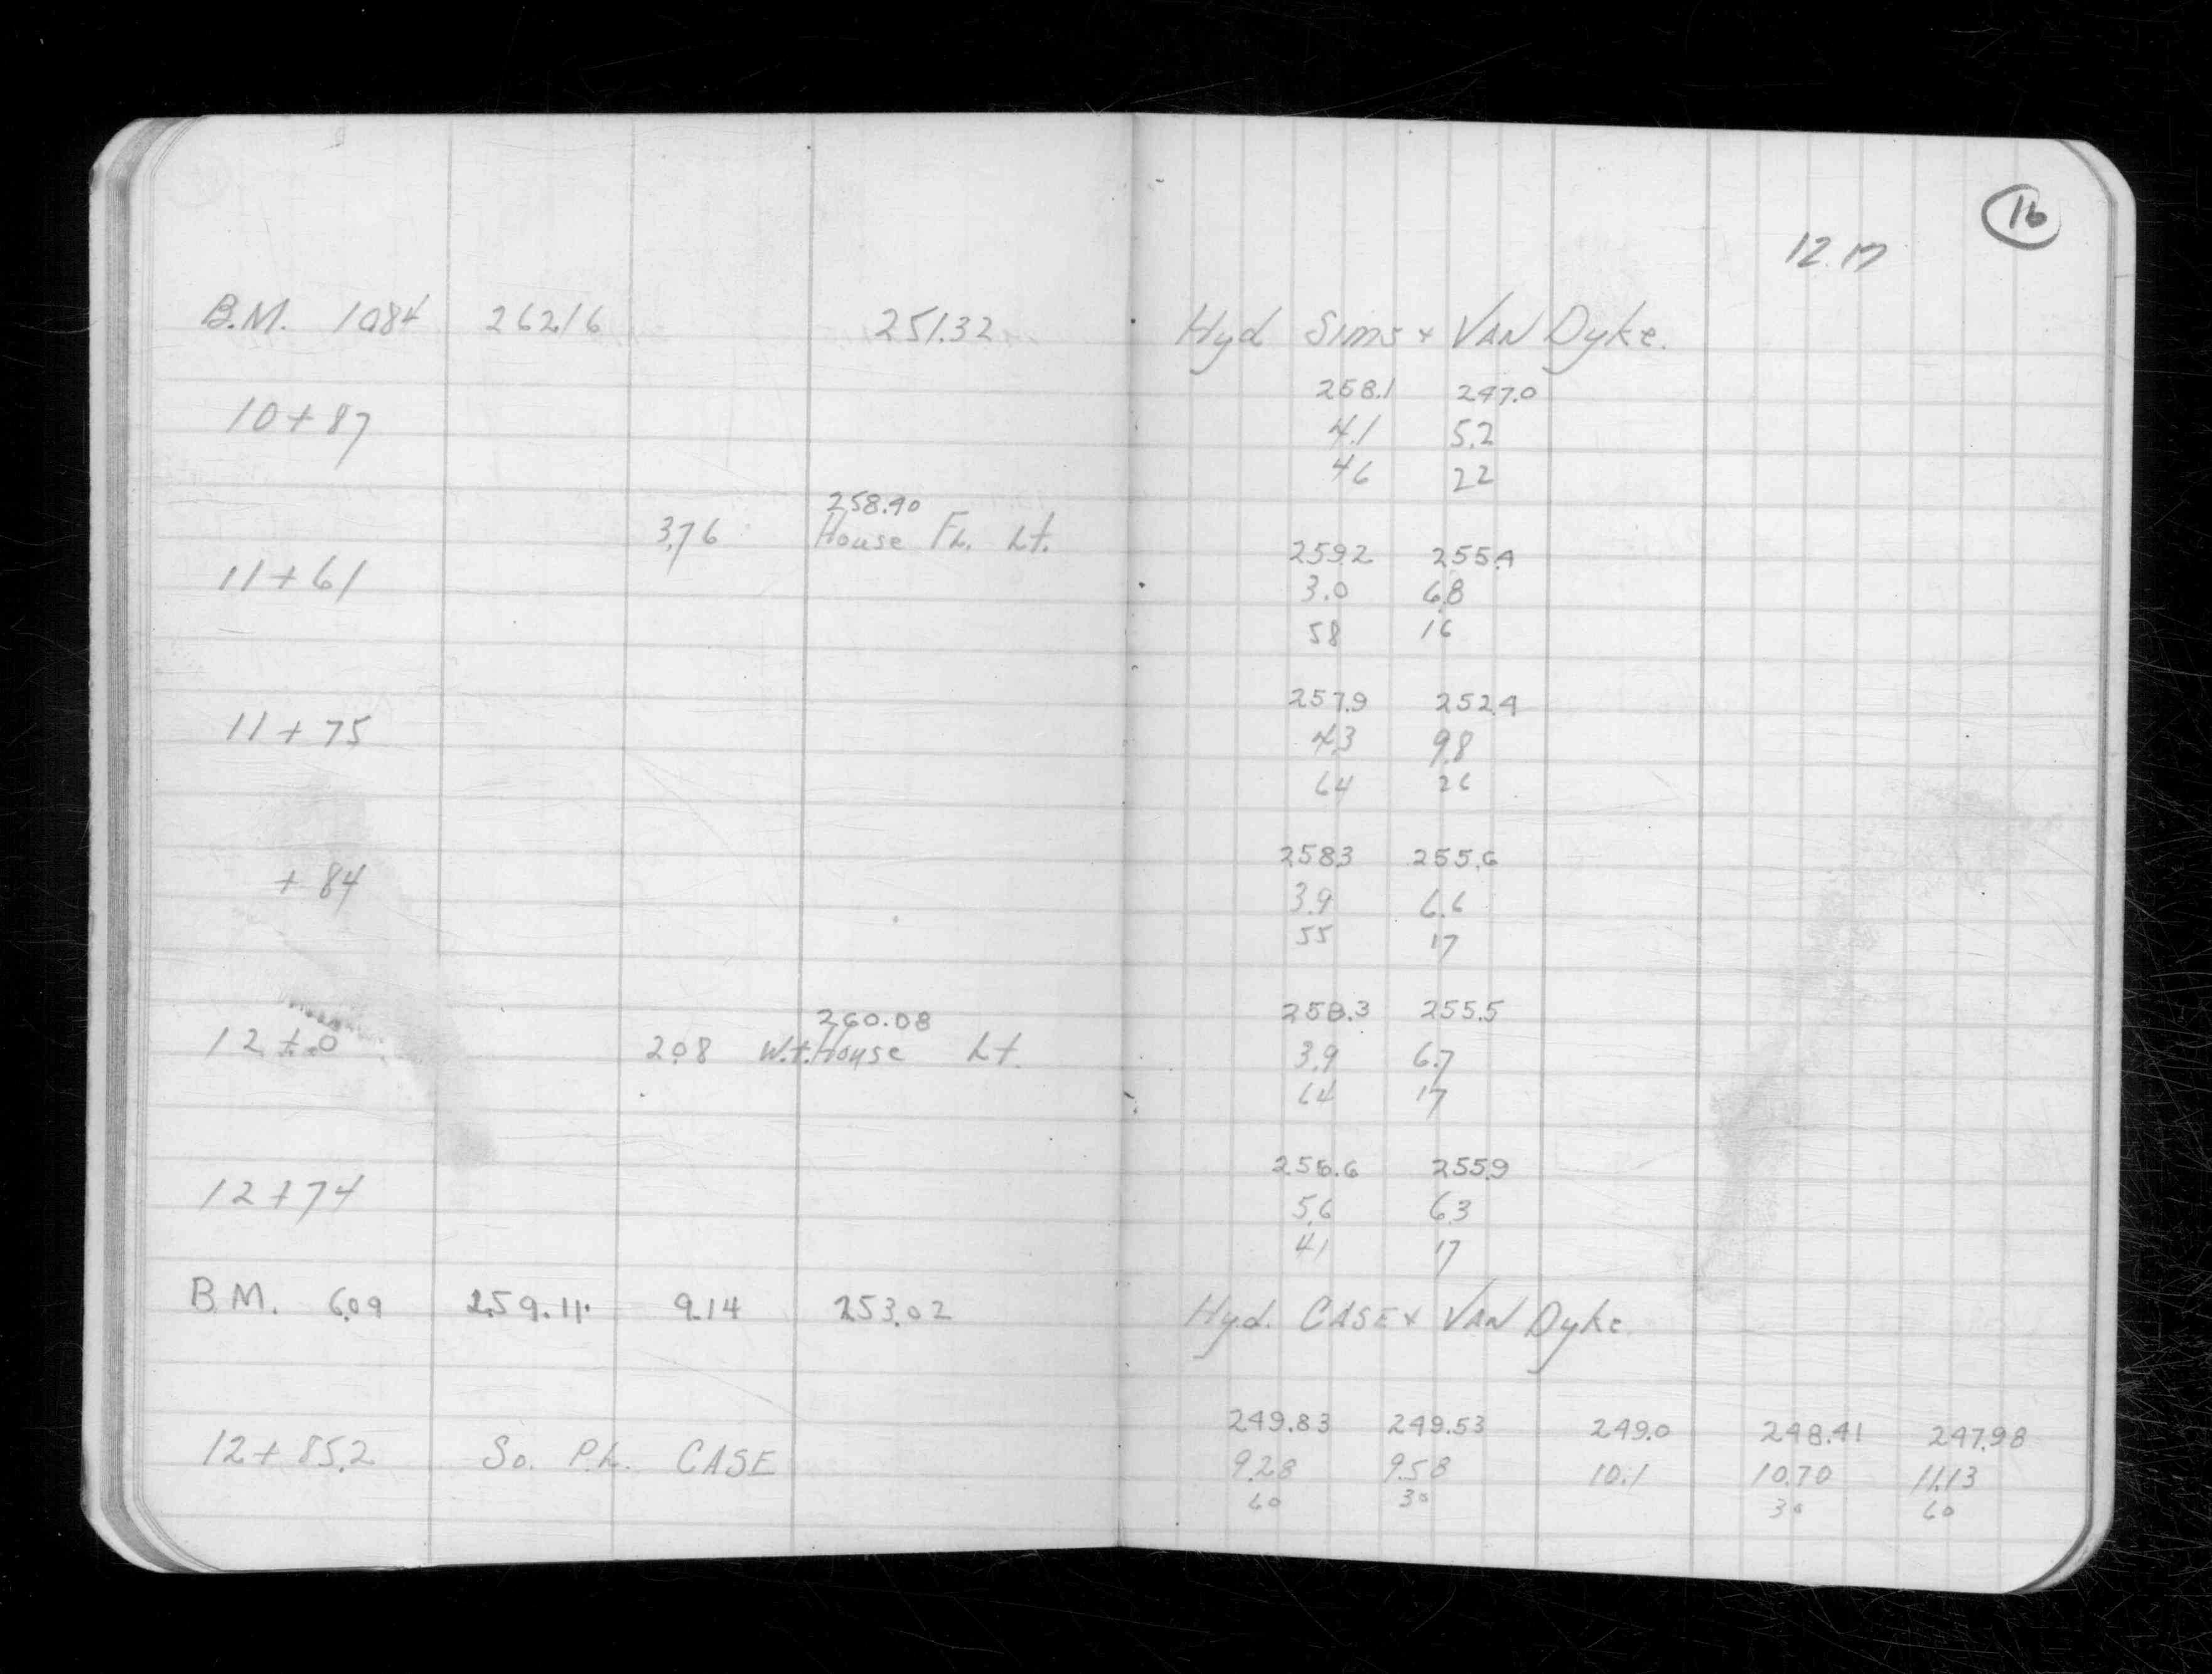 16
12.17
B.M. 10.84 262.16 251.32 Hyd Sims + VAN Dyke.
258.1 247.0
10+87 4.1 5.2
46 22
258.40
3.76 House FL. Lt.
259.2 255.4
11+61 3.0 6.8
58 16
257.9 252.4
11+75 4.3 9.8
64 26
258.3 255.6
+84 3.9 6.6
55 17
260.08 258.3 255.5
12+0 2.08 W.t. House Lt. 3.9 6.7
64 17
256.6 255.9
12+74 5.6 6.3
41 17
B.M. 6.09 259.11 9.14 253.02 Hyd. CASE + VAN Dyke
249.83 249.53 249.0 248.41 247.98
12+85.2 So. P.L. CASE 9.28 9.58 10.1 10.70 11.13
60 30 30 60